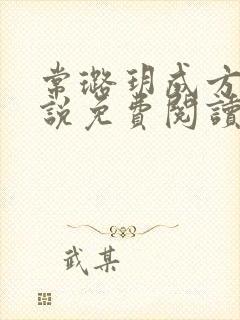 常璐玥成方
說免費閱讀
武某